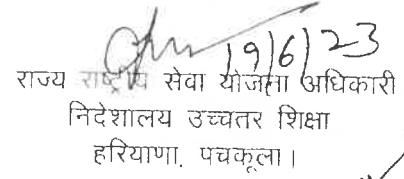 19/6/23
राज्य राष्ट्रीय सेवा योजना अधिकारी
निदेशालय उच्चतर शिक्षा
हरियाणा, पचकूला।